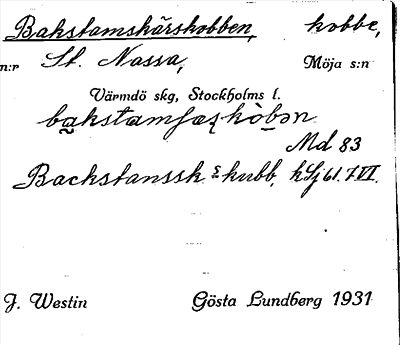 Bakstamskärskobben, kobbe,
n:r St. Nassa, Möja s:n
Värmdö skg, Stockholms l.
Md 83
Bachstanssk. s kubb, hSj 61.7 VI.
J. Westin Gösta Lundberg 1931